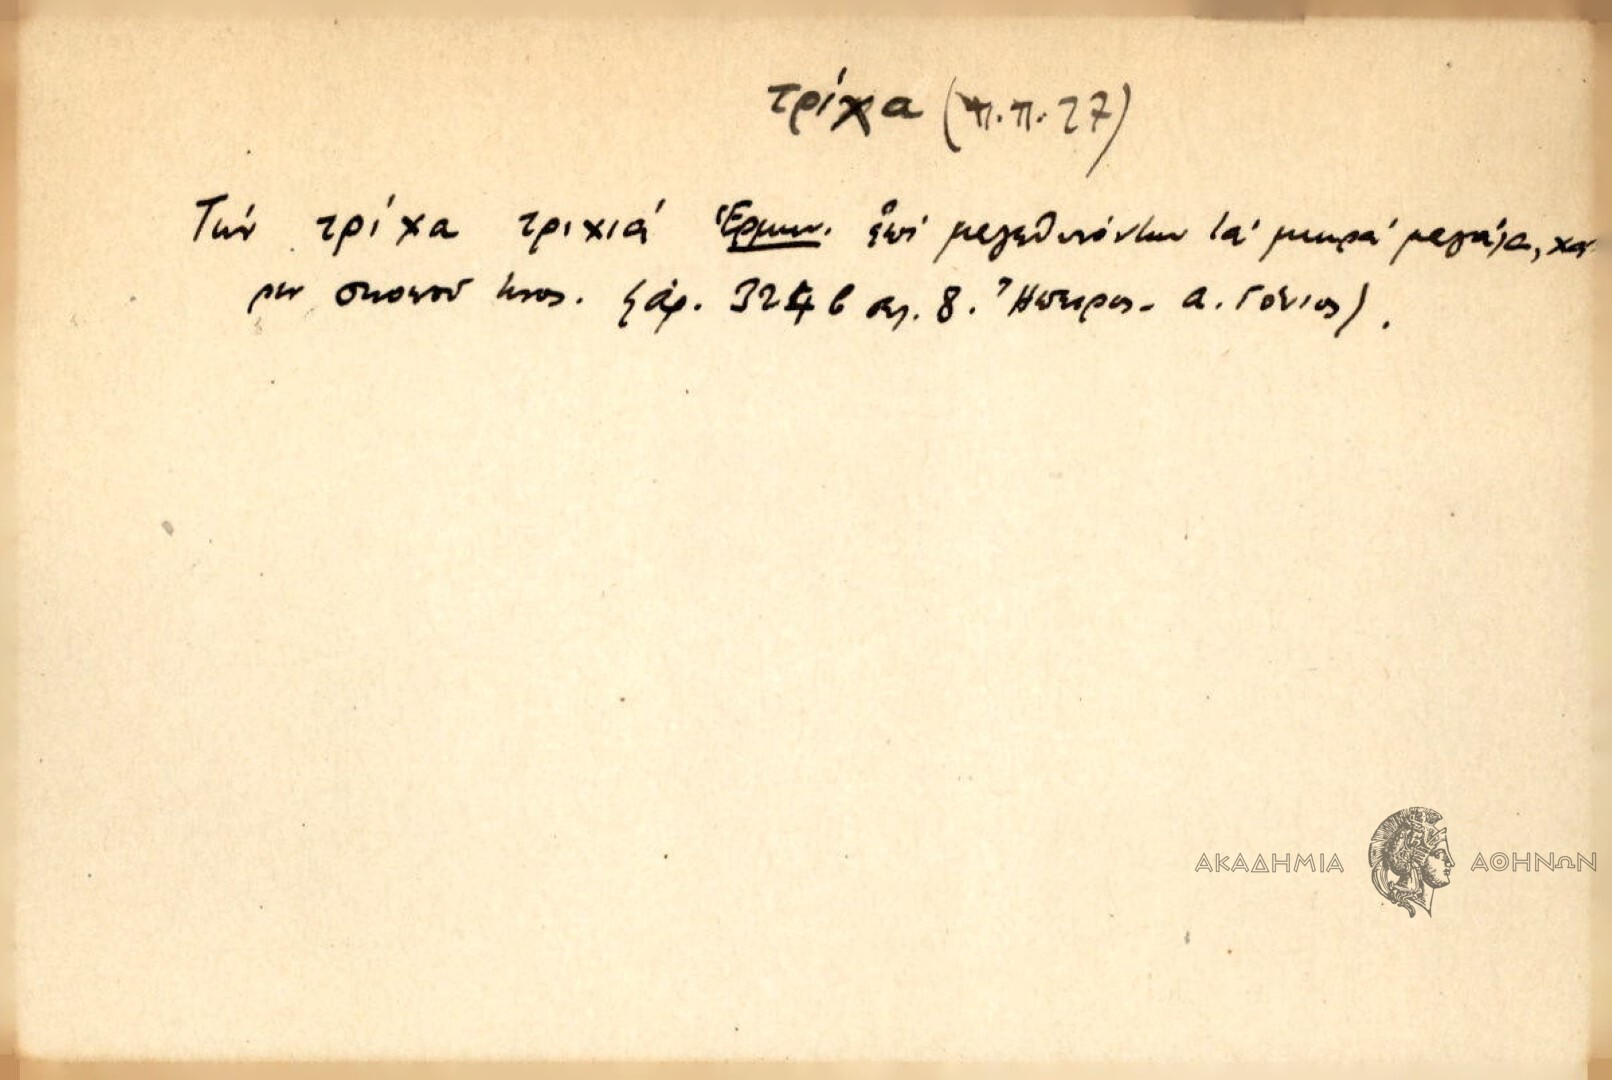 τρίχα (π.π. 27)
Τήν τρίχα τριχιά Ἑρμην. ἐπί μεγεθυνόντων τά μικρά μεγάλα, χά-
ριν σκοποῦ τινος. (ἀρ. 324 β σελ. 8. Ἤπειρος - α. Γόνιος).
ΑΚΑΔΗΜΙΑ ΑΘΗΝΩΝ